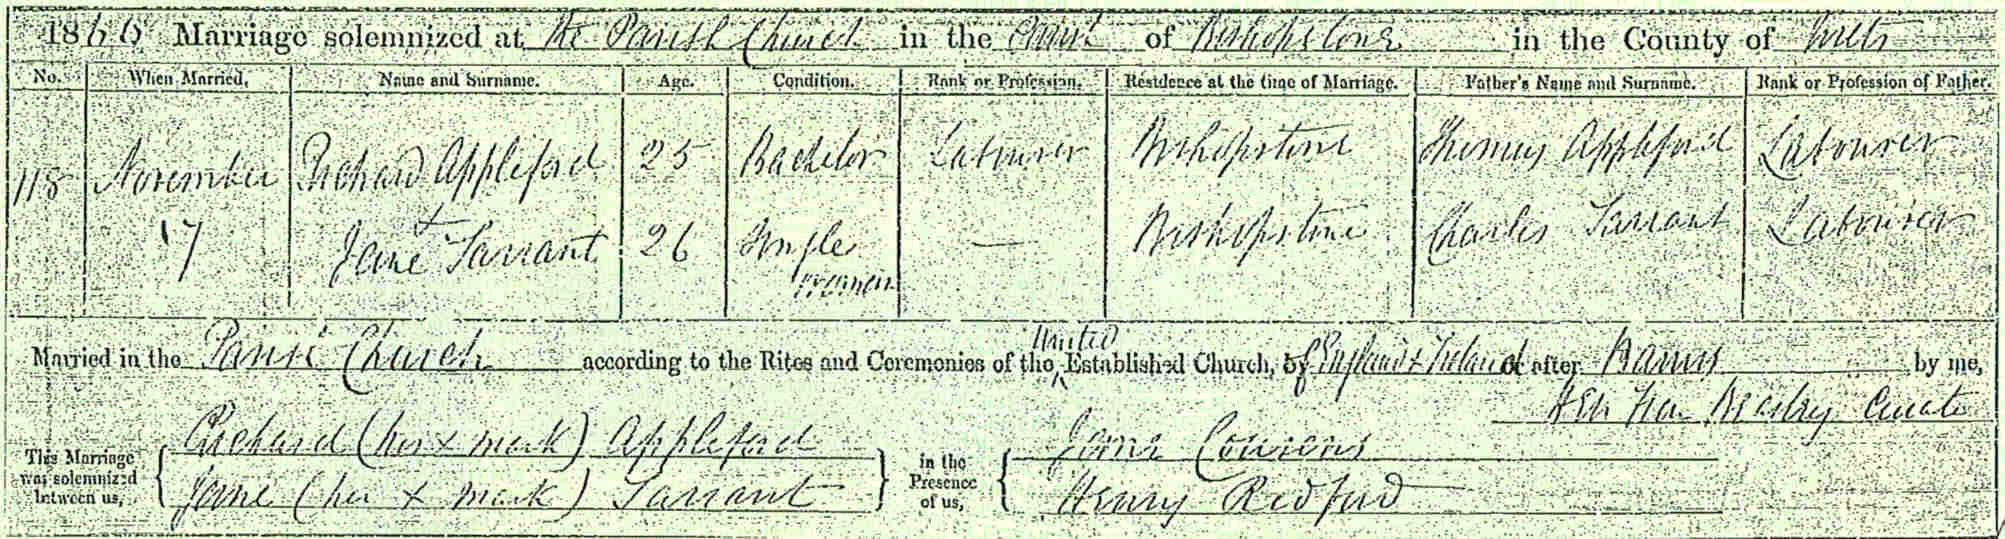 1866 Marriage solemnized at the Parish Church in the Parish of Bishopstone in the County of Wilts
No. When Married. Name and Surname. Age. Condition. Rank or Profession. Residence at the time of Marriage. Father's Name and Surname. Rank or Profession of Father.
118 November Richard Appleford 25 Bachelor Labourer Bishopstone Thomas Appleford Labourer
17 Jane Tarrant 26 Single Woman — Bishopstone Charles Tarrant Labourer
Married in the Parish Church according to the Rites and Ceremonies of the United Established Church, of England & Ireland after Banns by me,
Curate
This Marriage was solemnized between us, { Richard (his x mark) Appleford } in the Presence of us, { Jane
Jane (her x mark) Tarrant Henry Redford